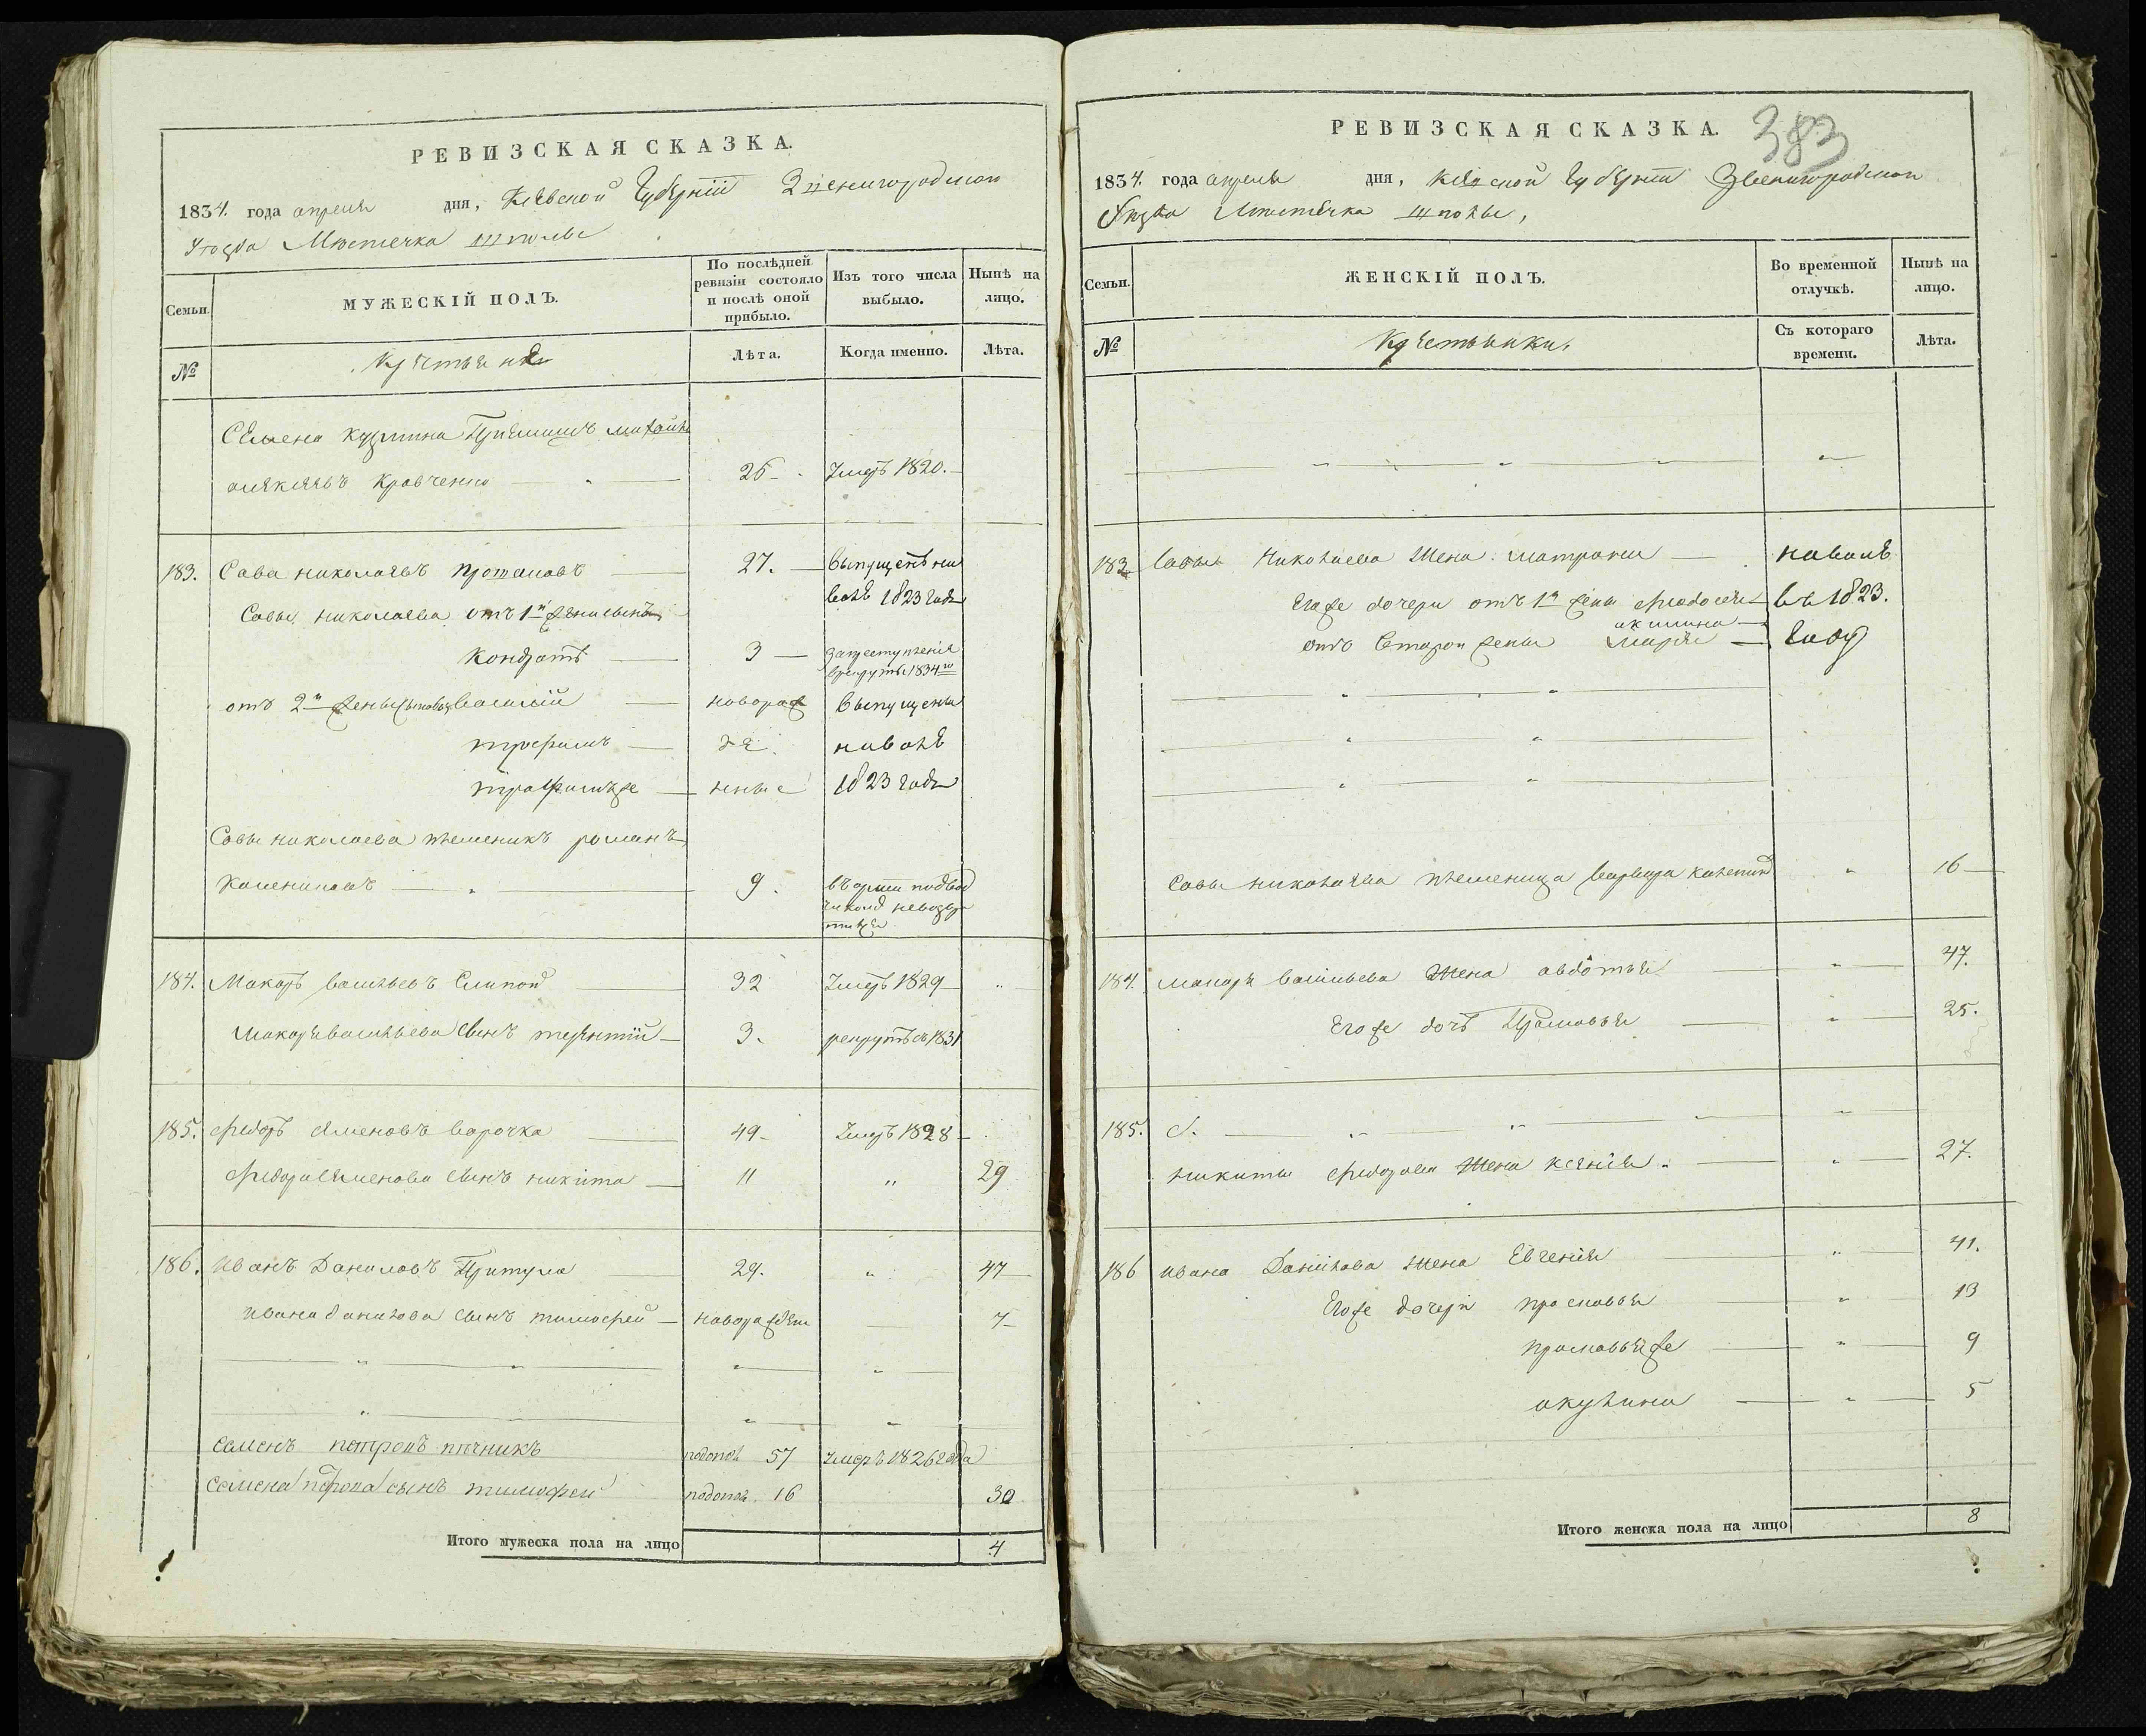 РЕВИЗСКАЯ СКАЗКА.
1834. года апреля дня, Киевской Губернїи Звенигородскаго
Уѣзда Мѣстечка Шполы
Семьи.
МУЖЕСКІЙ ПОЛЪ.
По послѣдней ревизіи состояло и послѣ оной прибыло.
Изъ того числа выбыло.
Нынѣ на лицо.
№
Крестьяне
Лѣта.
Когда именно.
Лѣта.
Семена Кузмина Приемишъ Михайло
Алексеевъ Кравченко 26 Умеръ 1820.
183. Сава Николаевъ 27. выпущенъ на
волѣ 1823 года
Савы Николаева отъ 1й жены сынъ
Кондратъ 3
рекруты 1834
отъ 2й жены сыновья Василий новорож выпущены
Трофимъ де на волѣ
Трофимъ же нные 1823 года
Савы Николаева племеникъ Романъ
9.
184. Макаръ Васильевъ Слипой 32 Умеръ 1829
Макара Васильева сынъ Терентїй 3. рекрутъ въ 1831
185. Федоръ Семеновъ Варочка 49 Умеръ 1828
Федора Семенова сынъ Никита 11 " 29
186. Иванъ Даниловъ Притула 29. " 47
Ивана Данилова сынъ Тимофей новорожден 7
Семенъ Петровъ подопов 57 Умеръ 1826 года
Семена Петрова сынъ Тимофей подопов. 16 30
Итого мужеска пола на лицо 4
383
РЕВИЗСКАЯ СКАЗКА.
1834. года апреля дня, Киевской Губернїи Звенигородскаго
Уѣзда Мѣстечка Шполы,
Семьи.
ЖЕНСКІЙ ПОЛЪ.
Во временной отлучкѣ.
Нынѣ на лицо.
№
Крестьянки.
Съ котораго времени.
Лѣта.
183 Савы Николаева жена Матрона на волѣ
Его же дочери отъ 1й жены Федосия въ 1823.
акилина
отъ второй жены Мария году
Савы Николаева племеница Варвара " 16
184. Макара Васильева жена Авдотья " 47.
Его же дочь Прасковья " 25.
185.
Никиты Федорова жена Ксения. " 27.
186 Ивана Данилова жена Евгения " 41.
Его же дочери Прасковья " 13
Прасковья же " 9
Акулина " 5
Итого женска пола на лицо 8